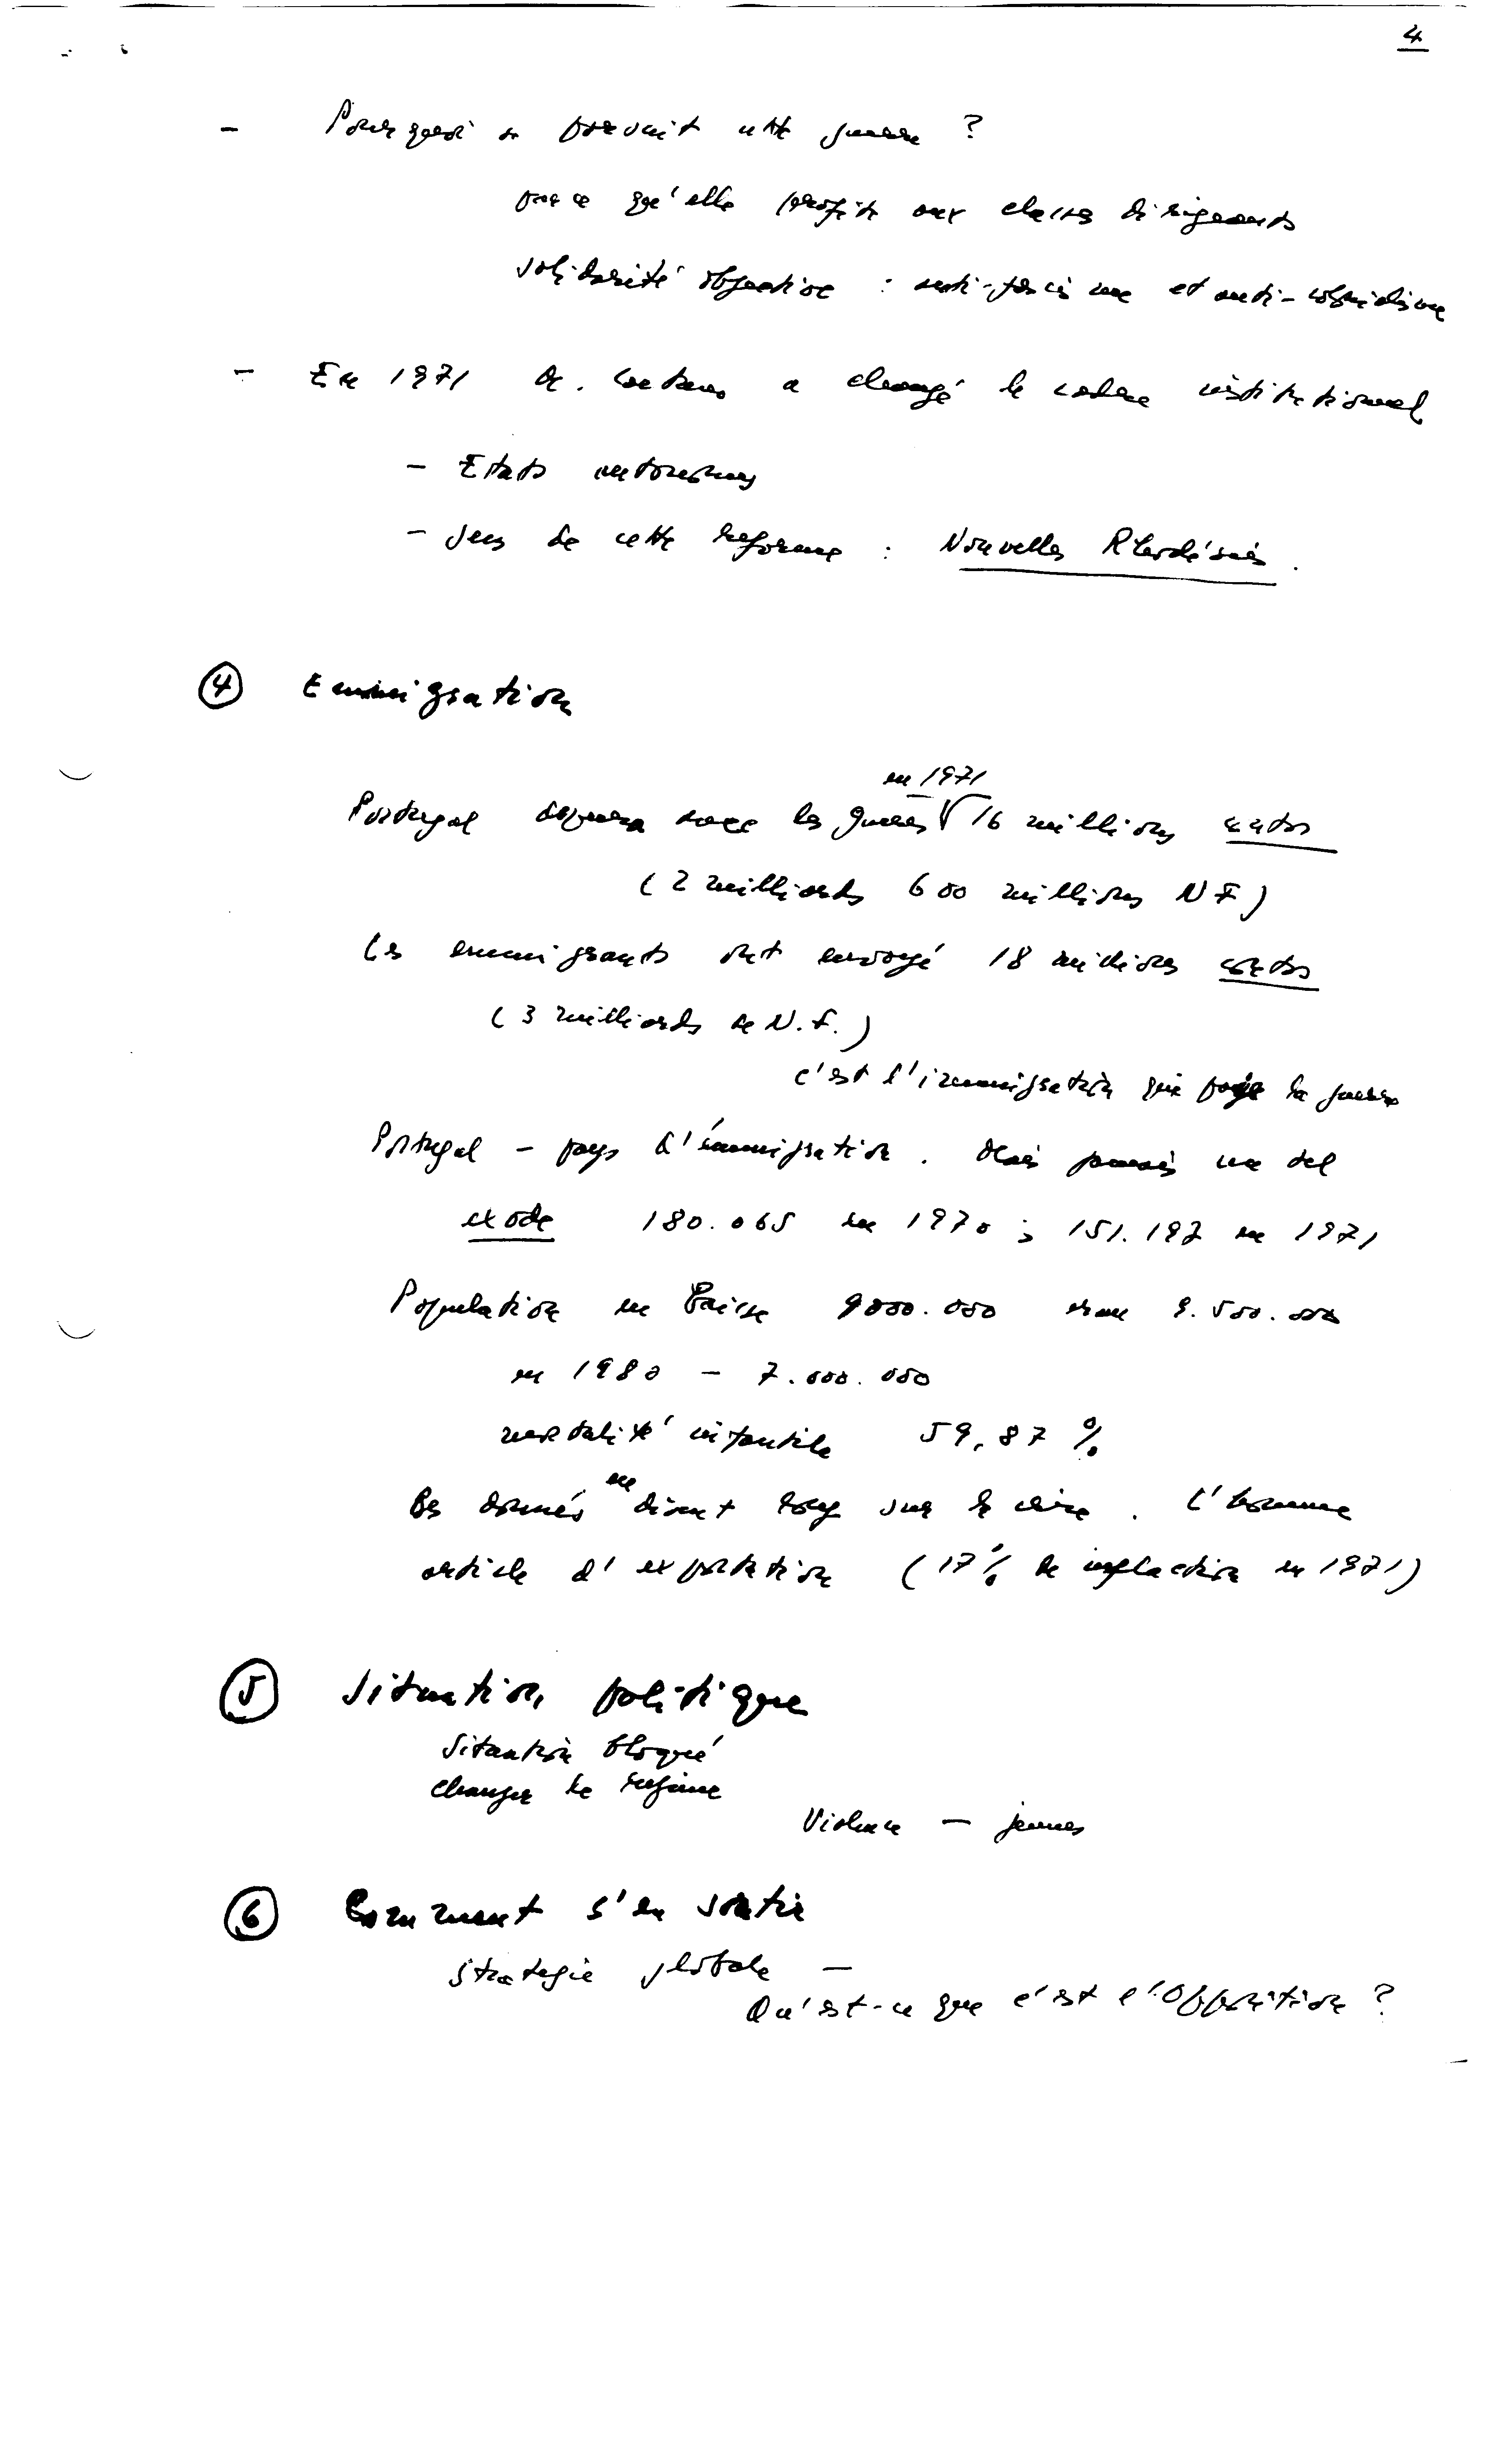 4
- Pourquoi se poursuit cette guerre ?
parce qu'elle profite aux classes dirigeants
solidarité objective : anti-fascisme et anti-colonialisme
- En 1971 M. Caetano a changé le cadre institutionnel
- Etats autonomes
- sens de cette reforme : Nouvelles Rhodésies.
④ Emmigration
en 1971
Portugal avec les guerres 16 millions contos
(2 milliards 600 millions NF)
Les emmigrants ont envoyé 18 millions contos
(3 milliards de N.F.)
c'est l'immigration qui paye la guerre
Portugal - pays d'émmigration. Mais jamais un tel
exode 180.065 en 1970 ; 151.197 en 1971
Population en baisse 9000.000 9.500.000
en 1980 - 7.000.000
mortalité infantile 59,87 %
Ces donnés en disent long sur la crise. L'homme
article d'exportation (17% de inflaction en 1971)
⑤ Situation politique
Situation bloqué
changer de regime
Violence - jeunes
⑥ Comment s'en sortir
Strategie globale -
Qu'est-ce que c'est l'Opposition ?